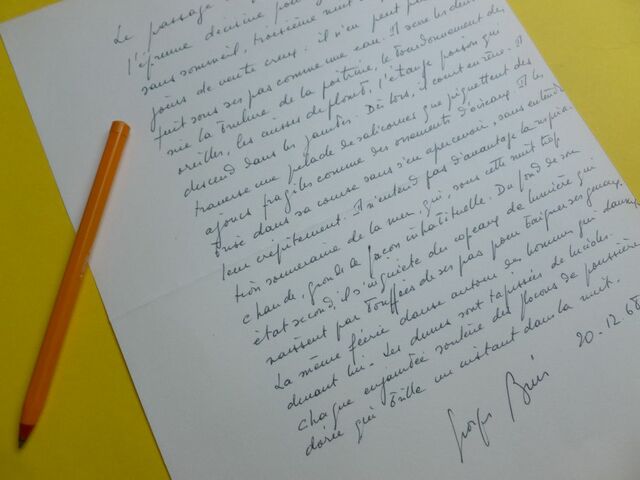 Le passage
l'épreuve décisive pour
sans sommeil, troisième nuit
jours de vente creux : il n'en peut
fuit sous ses pas comme une eau. Il serre les dents
sur la brûlure de la poitrine, le bourdonnement des
oreilles, les cuisses de plomb, l'étrange poison qui
descend dans les jambes. Dès lors, il court en rêve. Il
traverse une pelade de salicornes que piquettent des
ajoncs fragiles comme des ossements d'oiseaux. Il les
brise dans sa course sans s'en apercevoir, sans entendre
leur crépitement. Il n'entend pas davantage la respira-
tion souveraine de la mer, qui, sous cette nuit trop
chaude, gronde de façon inhabituelle. Du fond de son
état second, il s'inquiète des copeaux de lumière qui
naissent par touffes de ses pas pour baigner ses genoux.
La même féérie danse autour des hommes qui
devant lui. Les dunes sont tapissées de lucioles.
chaque enjambée soulève des flocons de poussière
dorée qui brille un instant dans la nuit.
20-12-68
Georges